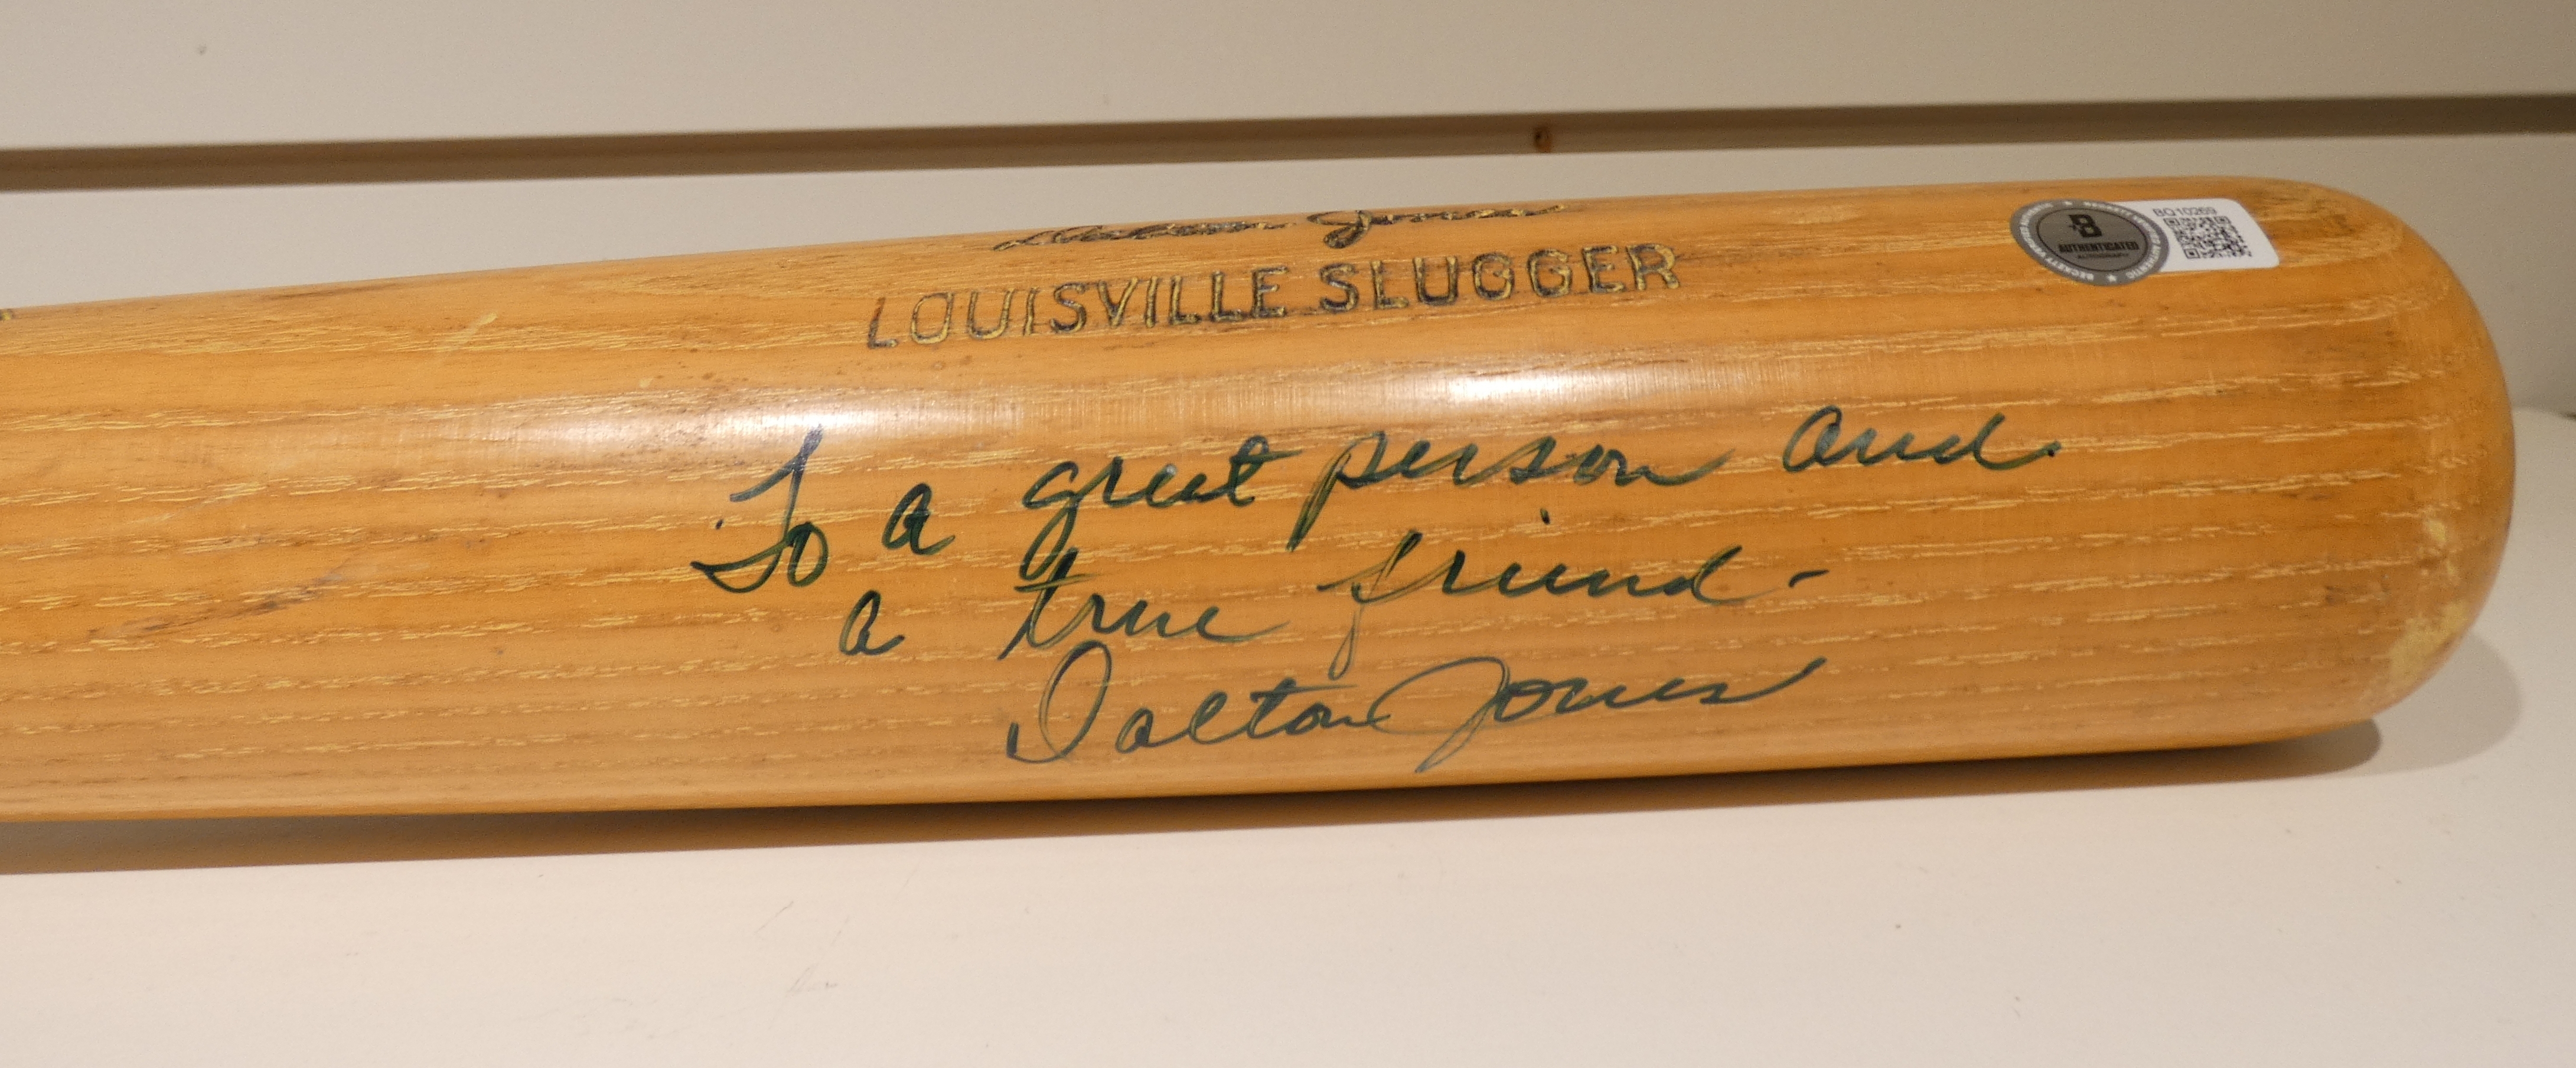 Dalton Jones
LOUISVILLE SLUGGER
B
AUTHENTICATED
BQ10269
To a great person and
a true friend-
Dalton Jones